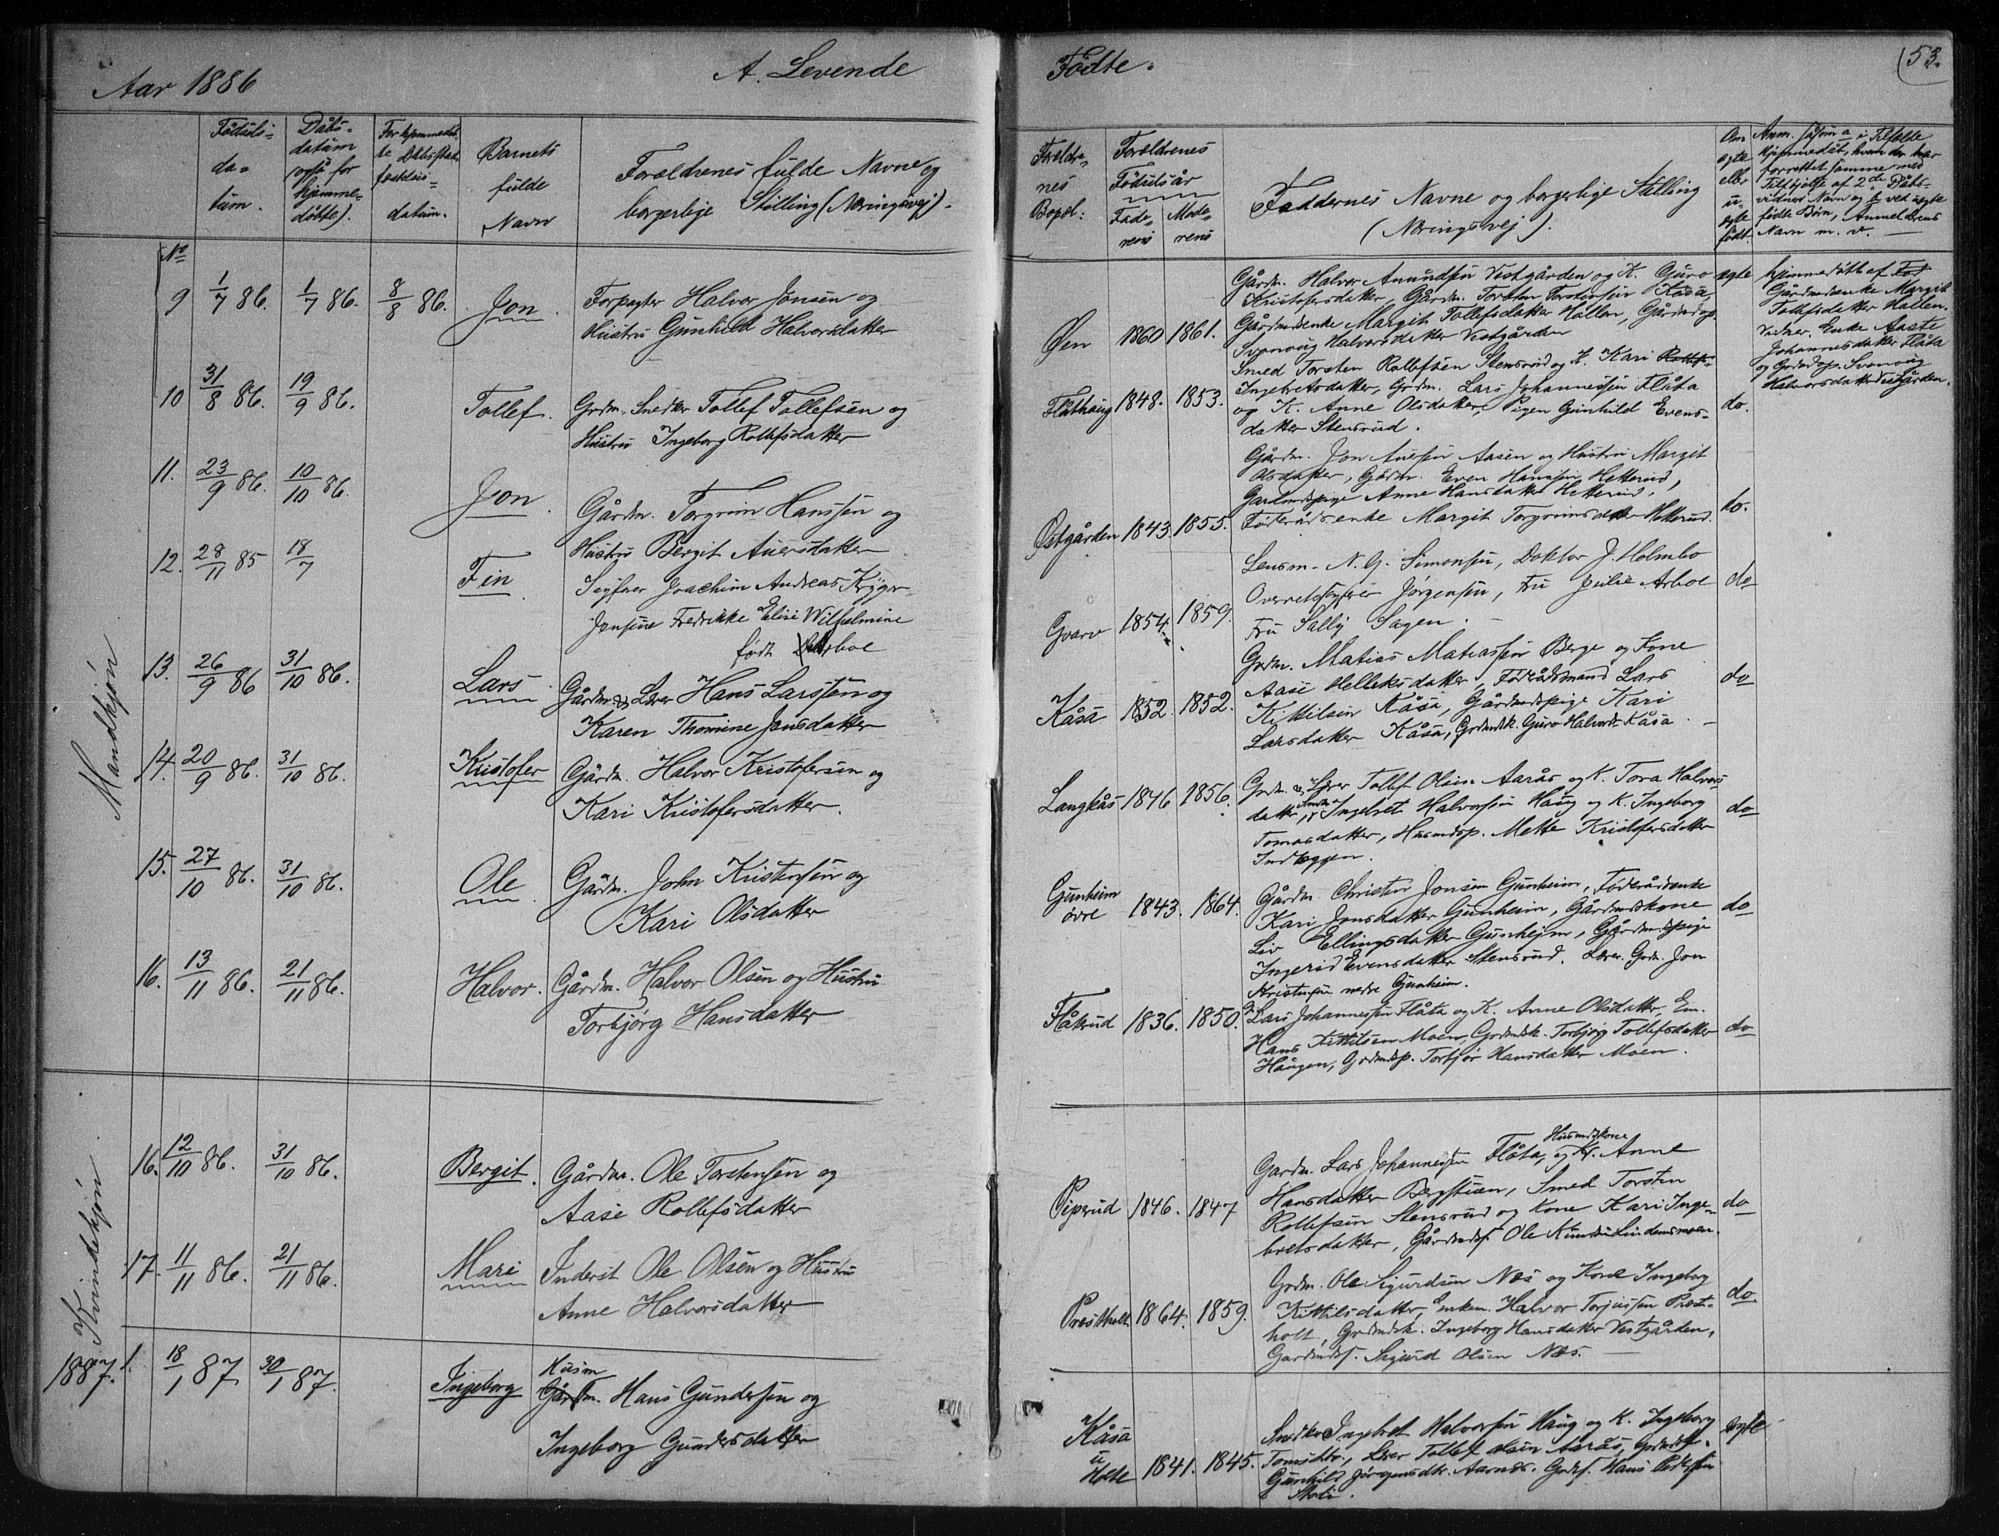 Aar 1886
A. Levende
Fødte.
53.
Fødsels=
da=
tum.
Dåbs=
datum
også for
hjemme=
døbte).
datum.
Barnets
fulde
Navn
Forældrenes fulde Navne og
borgerlige Stilling (Næringsvej).
Forældre=
nes
Bopæl:
Forældrenes
Fødselsår
Fade=
rens
Mode=
rens
Faddernes Navne og borgerlige Stilling
(Næringsvej).
Om
ægte
eller
u=
ægte
født.
Anm. såsom a i Tilfælde
hjemmedøbt, hvem der har
forrettet samme med
Tilføjelse af 2de Dåbs-
vidners Navn og b ved uægte
fødte Børn, Anmelderens
Navn m. v. —
Mandkjøn
No
9 1/7 86. 1/7 86. 8/8 86. Jon. Forpagter Halvor Jonsen og
Hustru Gunhild Halvorsdatter
Øen 1860 1861.
Gårdm. Halvor Amundsen Vestgården og K. Guro
Kristofersdatter, Gårdm. Torsten Torstensen Kåsa,
Gårdmdsenke Margit Tollefsdatter Hallen, Gårdmdsp.
Svanaug Halvorsdatter Vestgården
ægte
hjemmedøbt af
Gårdmdsenke Margit
Tollefsdatter Hallen.
Vidner. Enke Aaste
Johannesdatter Flåta
og Grdmdsp. Svanaug
Halvorsdatter Vestgården.
10 31/8 86. 19/9 86. Tollef. Grdm. Snedker Tollef Tollefsen og
Hustru Ingeborg Rollefsdatter
Flåthaug 1848. 1853.
Smed Torsten Rollefsen Stensrud og K. Kari
Ingebretsdatter, Grdm. Lars Johannessen Flåta
og K. Anne Olsdatter, Pigen Gunhild Evens-
datter Stensrud.
do.
11. 23/9 86. 10/10 86. Jon. Gårdm. Torgrim Hanssen og
Hustru Bergit Auensdatter
Østgården 1843. 1855.
Gårdm. Jon Auesen Aasen og Hustru Margit
Olsdatter, Gårdm. Even Hanssen Hetterud,
Gårdmdspige Anne Hansdatter Hetterud,
Føderådsenke Margit Torgrimsdatter Hetterud.
do.
12. 28/11 85 18/7 Fin Joachim Andreas Krøger
Jensine Fredrikke Elise Wilhelmine
født Arboe
Gvarv 1854. 1859.
Lensm. N. G. Simonsen, Doktor J. Holmbo
Overretssagfører Jørgensen, Fru Julie Arboe
Fru Sally Sagen.
do
13. 26/9 86 31/10 86. Lars Gårdm. & Lærer Hans Larssen og
Karen Thomine Jensdatter
Kåsa 1852. 1852.
Grdm. Matias Matiassen Berge og Kone
Aase Helleksdatter, Føderådsmand Lars
Kittilsen Kåsa, Gårdmdspige Kari
Larsdatter Kåsa, Grdmdsk. Guro Halvorsd. Kåsa. —
do
14. 20/9 86. 31/10 86. Kristofer Gårdm. Halvor Kristofersen og
Kari Kristofersdatter.
Langkås 1846 1856.
Grdm. & Lærer Tollef Olsen Aarås og K. Tora Halvors-
datter, Ingebret Halvorsen Haug og K. Ingeborg
Tomasdatter, Husmdsp. Mette Kristofersdatter
do
15. 27/10 86. 31/10 86. Ole Gårdm. John Kristensen og
Kari Olsdatter
Gunheim
øvre 1843. 1864.
Gårdm. Christen Jonsen Gunheim, Føderådsenke
Kari Jonsdatter Gunheim, Gårdmdskone
Liv Ellingsdatter Gunheim, Gårdmdspige
Ingerid Evensdatter Stensrud. Lærer. Grdm. Jon
Kristensen nedre Gunheim.
do
16. 13/11 86. 21/11 86. Halvor. Gårdm. Halvor Olsen og Hustru
Torbjørg Hansdatter
Flåtrud 1836. 1850.
Lars Johannessen Flåta og K. Anne Olsdatter, Em.
Hans Kittilsen Moen, Grdmdsk. Torbjørg Tollefsdatter
Haugen, Grdmdsp. Torbjør Hansdatter Moen.
do
Kvindekjøn
16. 12/10 86. 31/10 86. Bergit. Gårdm. Ole Torstensen og
Aase Rollefsdatter
Piperud 1846. 1847
Husmdskone
Gardm. Lars Johannessen Flåta, og K. Anne
Hansdatter Bergstuen, Smed Torsten
Rollefsen Stensrud og Kone Kari Inge-
bretsdatter, Gårdmds. Ole Knudsen Lindemsmoen.
do
17. 11/11 86. 21/11 86. Mari Inderst Ole Olsen og Hustru
Anne Halvorsdatter
Præstholt 1864. 1859.
Grdm. Ole Sigurdsen Næs og Kone Ingeborg
Kittilsdatter, Enkem. Halvor Torjussen Præst-
holt, Grdmdsk. Ingeborg Hansdatter Vestgården,
Gardmds. Sigurd Olsen Næs. —
do
1887. 1. 18/1 87 30/1 87. Ingeborg Husm
Gårdm. Hans Gundersen og
Ingeborg Gundersdatter
Kåsa
u
Holte 1841. 1845.
Snedker Ingebret Halvorsen Haug og K. Ingeborg
Tomsdtr, Lærer Tollef Olsen Aarås,
Gunhild Jørgensdtr. Aarnes. Hans Pedersen
ægte